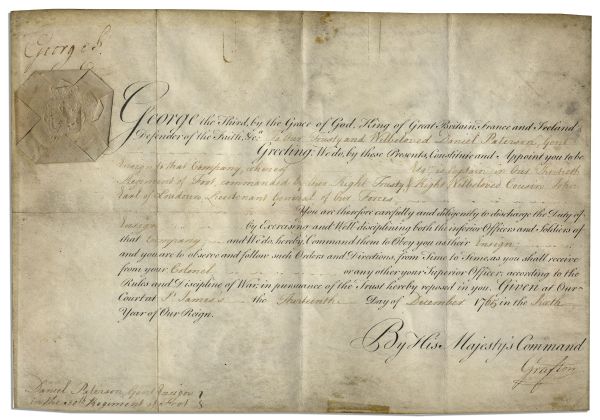 George R.
George the Third, by the Grace of God, King of Great Britain, France and Ireland
Defender of the Faith, &c. To Our Trusty and Wellbeloved Daniel Paterson, Gent.
Greeting. We do, by these Presents, Constitute and Appoint you to be
Ensign to that Company, whereof is Captain in Our Thirtieth
Regiment of Foot, commanded by Our Right Trusty & Right Wellbeloved Cousin John
Earl of Loudoun, Lieutenant General of Our Forces
You are therefore carefully and diligently to discharge the Duty of
Ensign by Exercising and Well disciplining both the inferior Officers and Soldiers of
that Company and We do hereby Command them to Obey you as their Ensign
and you are to observe and follow such Orders and Directions, from Time to Time, as you shall receive
from your Colonel or any other your Superior Officer, according to the
Rules and Discipline of War, in pursuance of the Trust hereby reposed in you. Given at Our
Court at St. James's the Thirteenth Day of December 1765 in the Sixth
Year of Our Reign.
By His Majesty's Command
Grafton
Daniel Paterson, Gent. Ensign
in the 30th Regiment of Foot